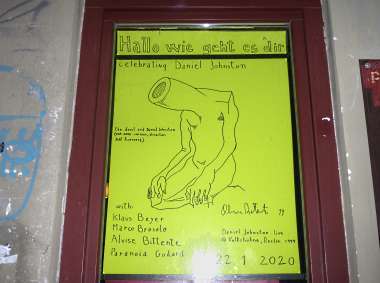 Hallo wie geht es dir
Celebrating Daniel Johnston
The devil and Daniel Johnston
with:
Klaus Beyer
Marco Brosolo
Alvise Bittente
Paranoia Godard
Daniel Johnston live
@ Volksbühne, Berlin 1999
22.1.2020